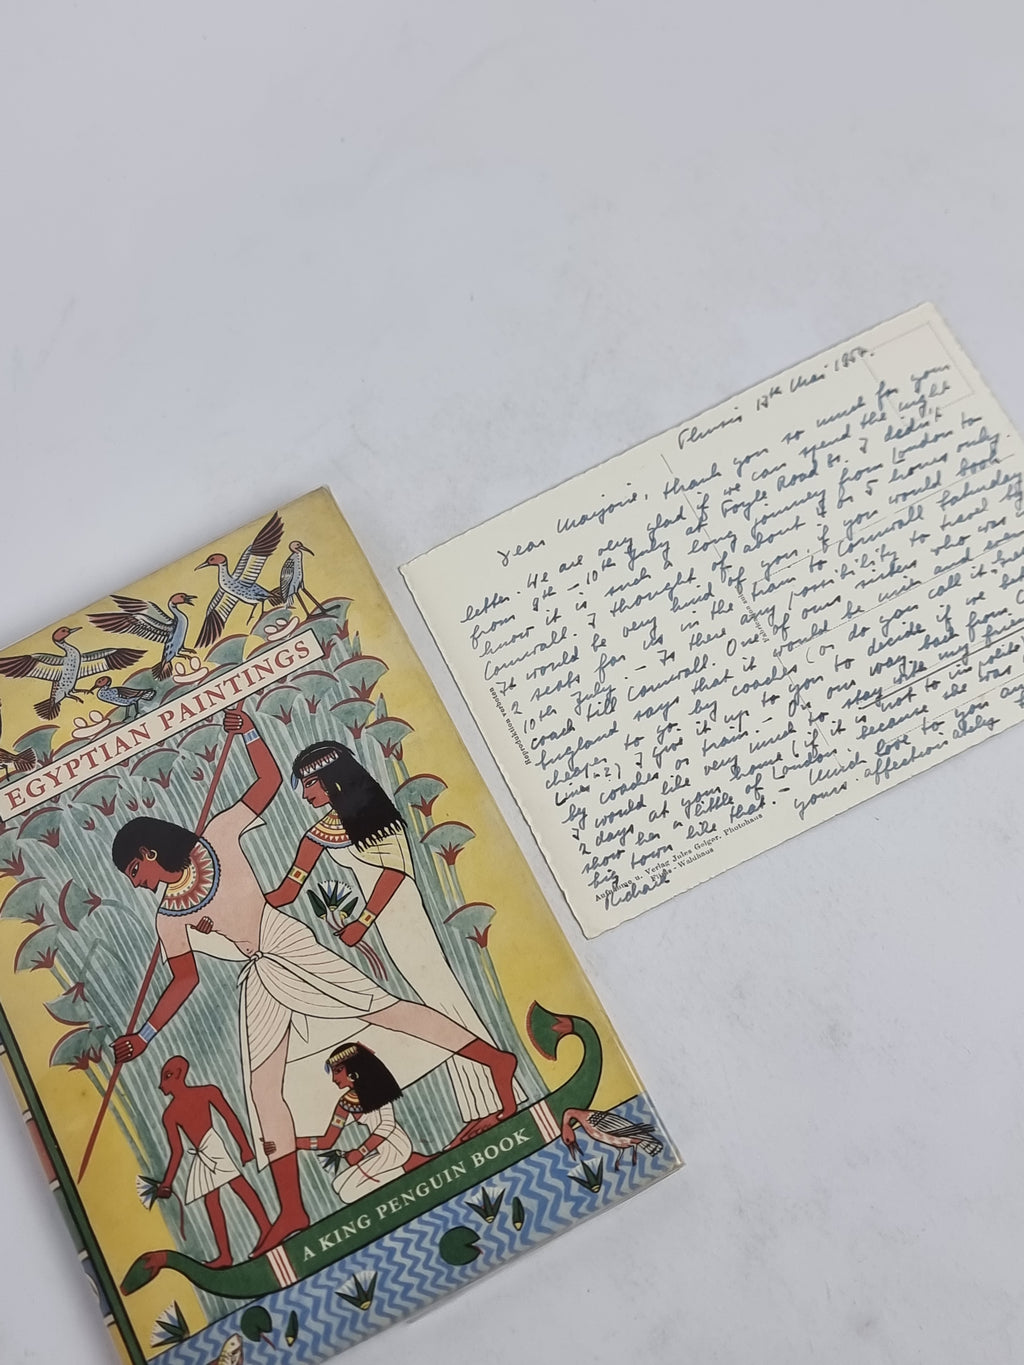 EGYPTIAN PAINTINGS
A KING PENGUIN BOOK
Thusis 17th Mai 195
Dear Marjorie, thank you so much for your
letter. We are very glad if we can spend the night
from 9th – 10th July at Foyle Road 80. I didn't
know it is such a long journey from London to
Cornwall. I thought of about 4 or 5 hours only.
It would be very kind of you, if you would book
2 seats for us in the train to Cornwall Saturday
10th July. – Is there any possibility to travel by
coach till Cornwall. One of ours sisters who was in
England says that it would be nice and even
cheaper to go by coaches (or do you call it
Lines?) I give it up to you to decide if we
by coaches or train. – On our way back from
I would like very much to stay with my friend
2 days at your home (if it is not to
show her a little of London, because she was
big town like that. – Much love to you
yours affectionately
Richard
Reproduktion verboten
Aufnahme u. Verlag Jules Geiger, Photohaus
Flims - Waldhaus